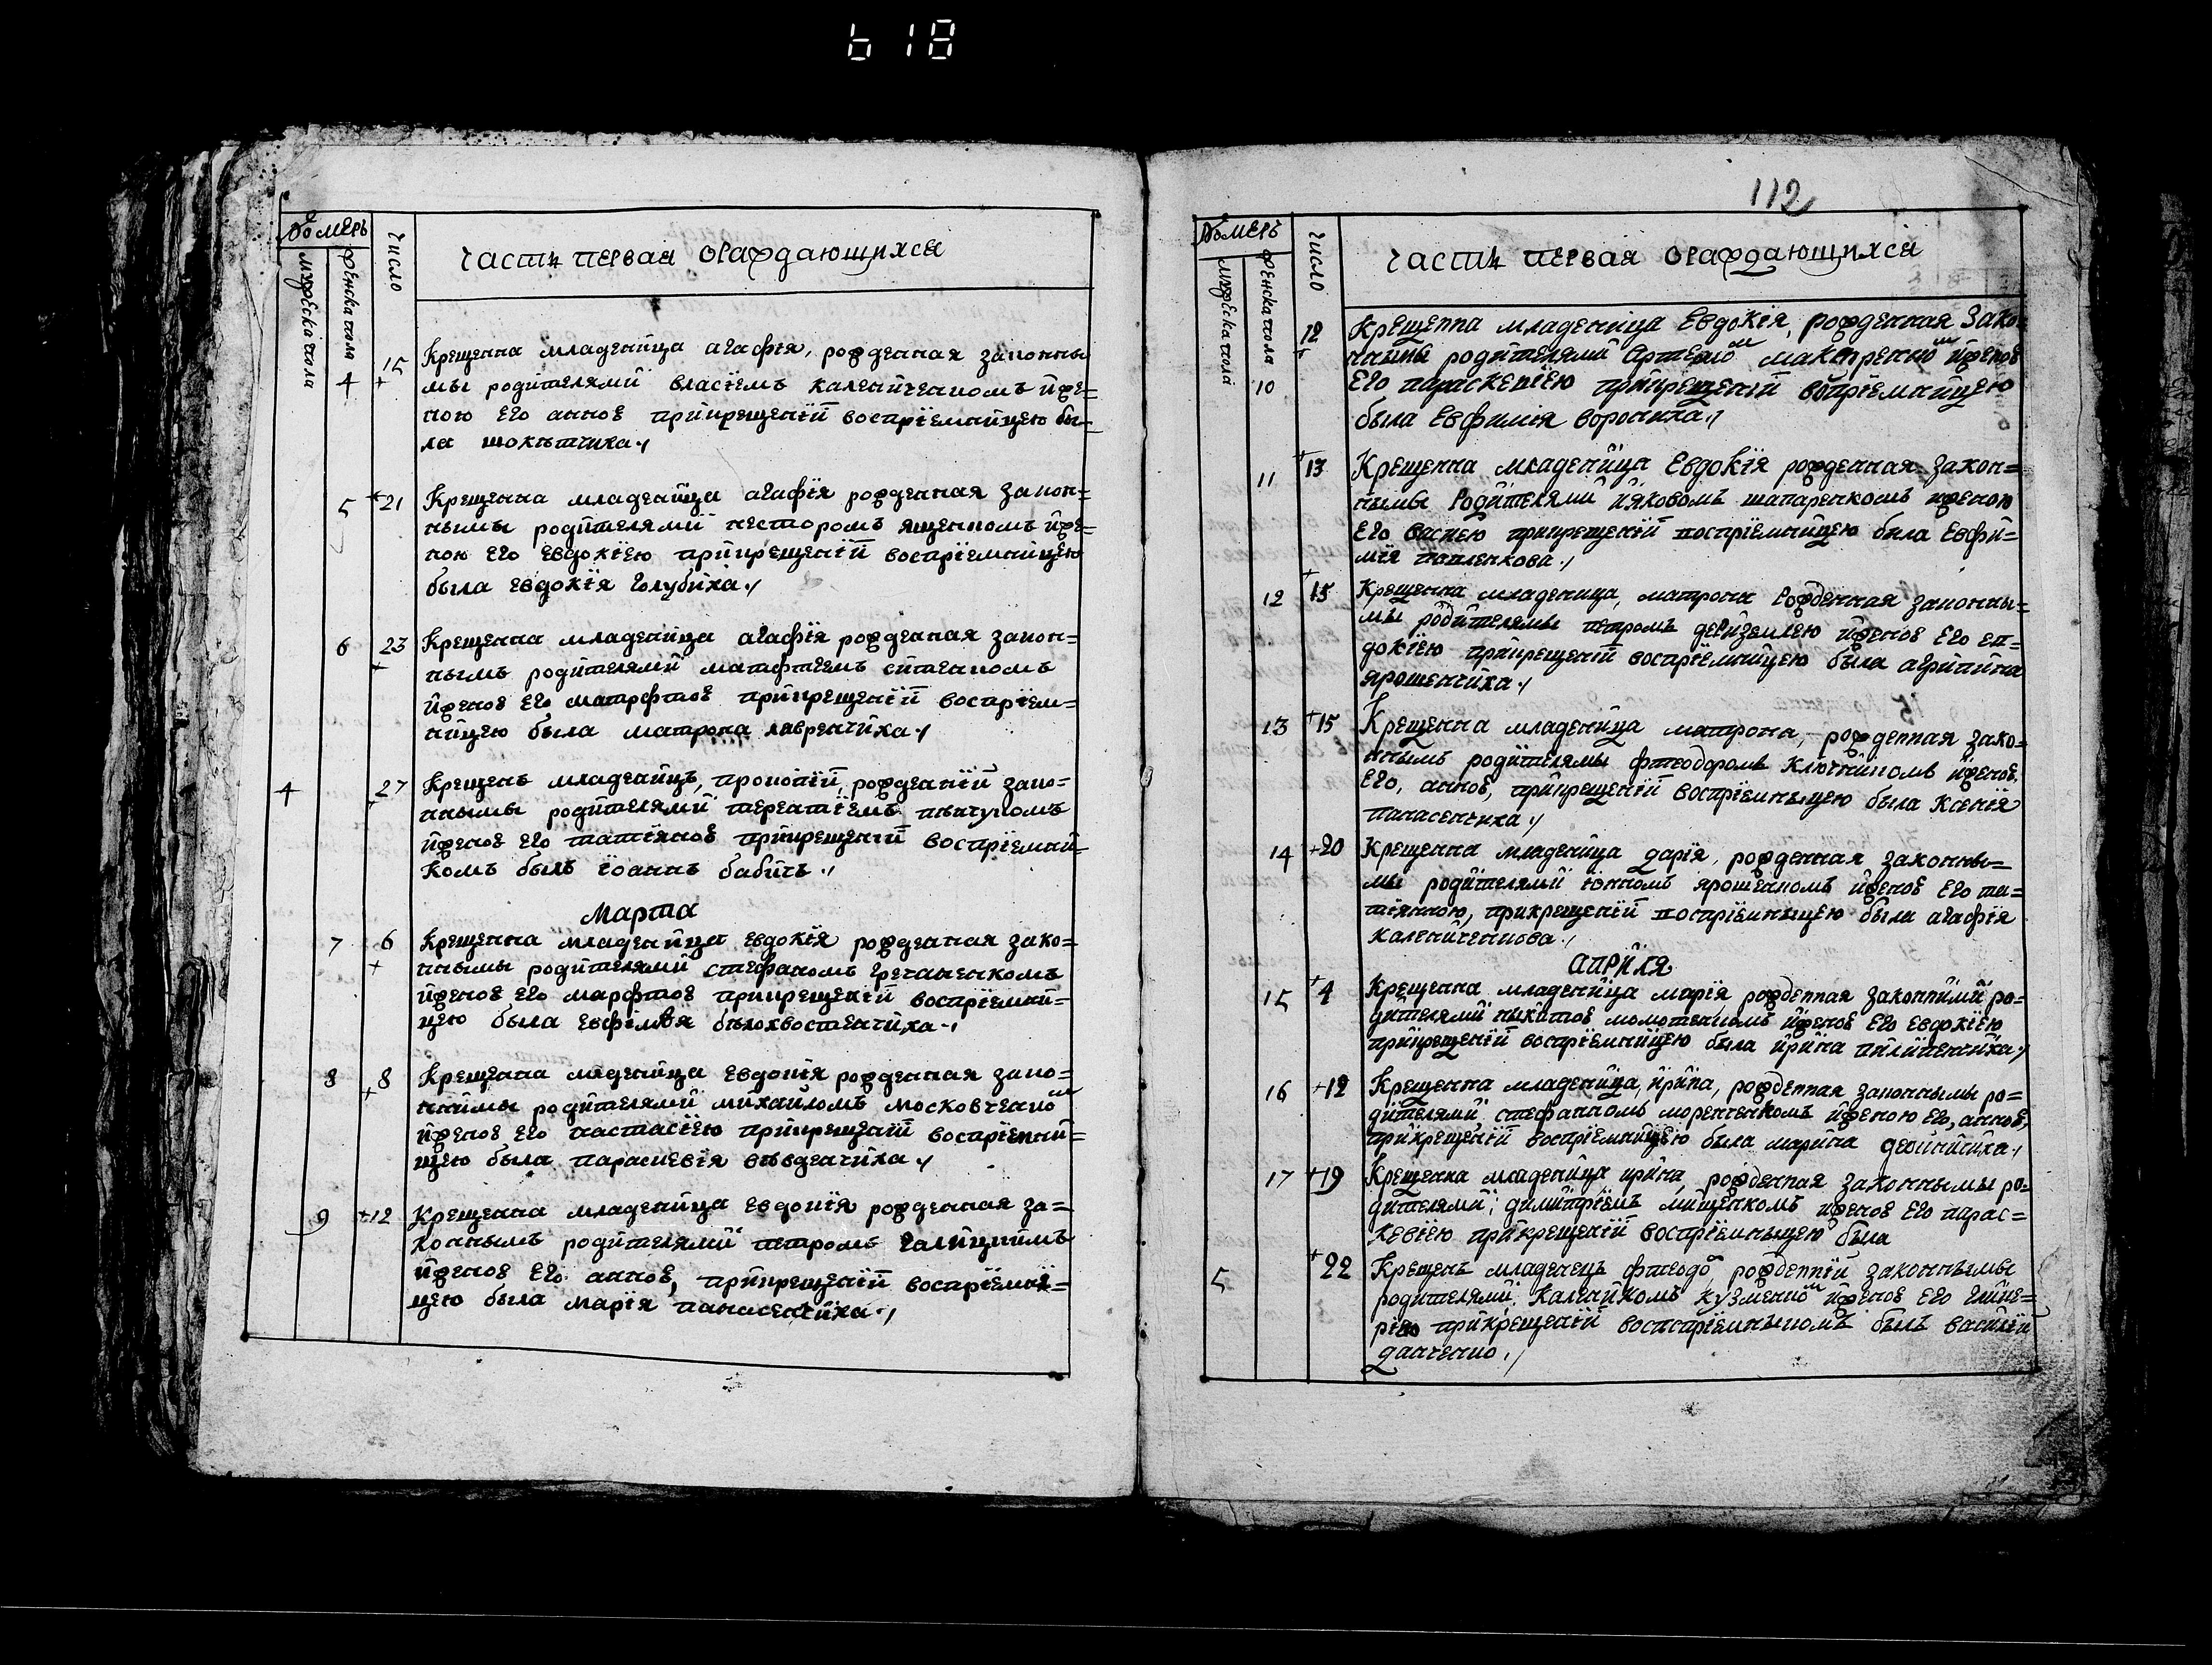 618
Номеръ
мужеска пола
женска пола
число
часть первая ораждающихся
4 15 Крещенна младенйца агафїя, рожденная законны
мы родйтелямй власїемъ каленйченкомъ йже=
ною его анноѣ прйкрещенїй воспрїемнйцею бы=
ла
5 21 Крещенна младенйца агафїя рожденная закон=
нымы родйтелямй несторомъ ященкомъ йже=
ною его евдокїею прйкрещенїй воспрїемнйцею
была евдокїя голубйха
6 23 Крещенна младенйца агафїя рожденная закон=
нымъ родйтелямй
йженоѣ его прйкрещенїй воспрїем=
нйцею была матрона лавренчйха
4 27 Крещенъ младенйцъ, прокопїй, рожденнїй зако=
ннымы родйтелямй терентїемъ
йженоѣ его татїяноѣ прйкрещенїй воспрїемнй=
комъ былъ їоаннъ бабйчъ
Марта
7 6 Крещенна младенйца евдокїя рожденная зако=
ннымы родйтелямй стефаномъ гречаненкомъ
йженоѣ его марфтоѣ прйкрещенїй воспрїемнй=
цею была бѣлохвостенчйха
8 8 Крещенна мледенйца евдокїя рожденная зако=
ннимы родйтелямй мйхайломъ московченком
йженоѣ его настасїею прйкрещенїй воспрїемнй=
цею была параскевїя
9 12 Крещенна младенйца евдокїя рожденная за=
коннымъ родйтелямй петромъ галйцкймъ
йженоѣ его анноѣ, прйкрещенїй воспрїемнй=
цею была марїя панасенчйха
112
Номеръ
мужеска пола
женска пола
число
часть первая ораждающихся
10 12 Крещенна младенйца Евдокїя, рожденная зако=
нными родйтелямй Артемом йженоѣ
его параскевїею прйкрещенїй воспрїемнйцею
была Евфимїя ворониха
11 13 Крещенна младенйца Евдокїя рожденная закон=
нымы родйтелямй йяковомъ шапаренкомъ йженою
его прйкрещенїй воспрїемнйцею была Евфй=
мїя павленкова
12 15 Крещенна младеница, матрона рожденная законны=
мы родйтелямы петромъ дерйземлею йженоѣ его ев=
докїею прйкрещенїй воспрїемнйцею была агрйпйна
ярошенчиха
13 15 Крещенна младенйца матрона, рожденная зако=
ннымъ родйтелямы фтеодоромъ ключнйкомъ йженоѣ
его, анноѣ, прйкрещенїй воспрїемныцею была Ксенїя
панасенчиха
14 20 Крещенна младенйца дарїя, рожденная законны=
мы родйтелямй ярошенкомъ йженоѣ его та=
тїянною, прикрещенїй воспрїемныцею была агафїя
каленйченкова
Апрйля
15 4 Крещенна младенйца марїя рожденная законнймй ро=
дйтелямй нйкитоѣ йженоѣ его евдокїею
прйкрещенїй воспрїемнйцею была йрйна пйлйпенчйха
16 12 Крещенна младенйца, йрйна, рожденная законнымы ро=
дйтелямй, стефанномъ йженою его, анноѣ,
прйкрещенїй воспрїемнйцею была марина
17 19 Крещенна младенйца ирйна, рожденная законнымы ро=
дйтелямй; дймйтрїемъ мйщенкомъ йженоѣ его парас=
кевїею прйкрещенїй воспрїемныцею была
5 22 Крещенъ младенецъ фтеодо, рожденнїй законнымы
родителямй, калнйкомъ кузменком йженоѣ его глйке=
рїею прйкрещенїй воспрїемныкомъ былъ васйлїй
данченко